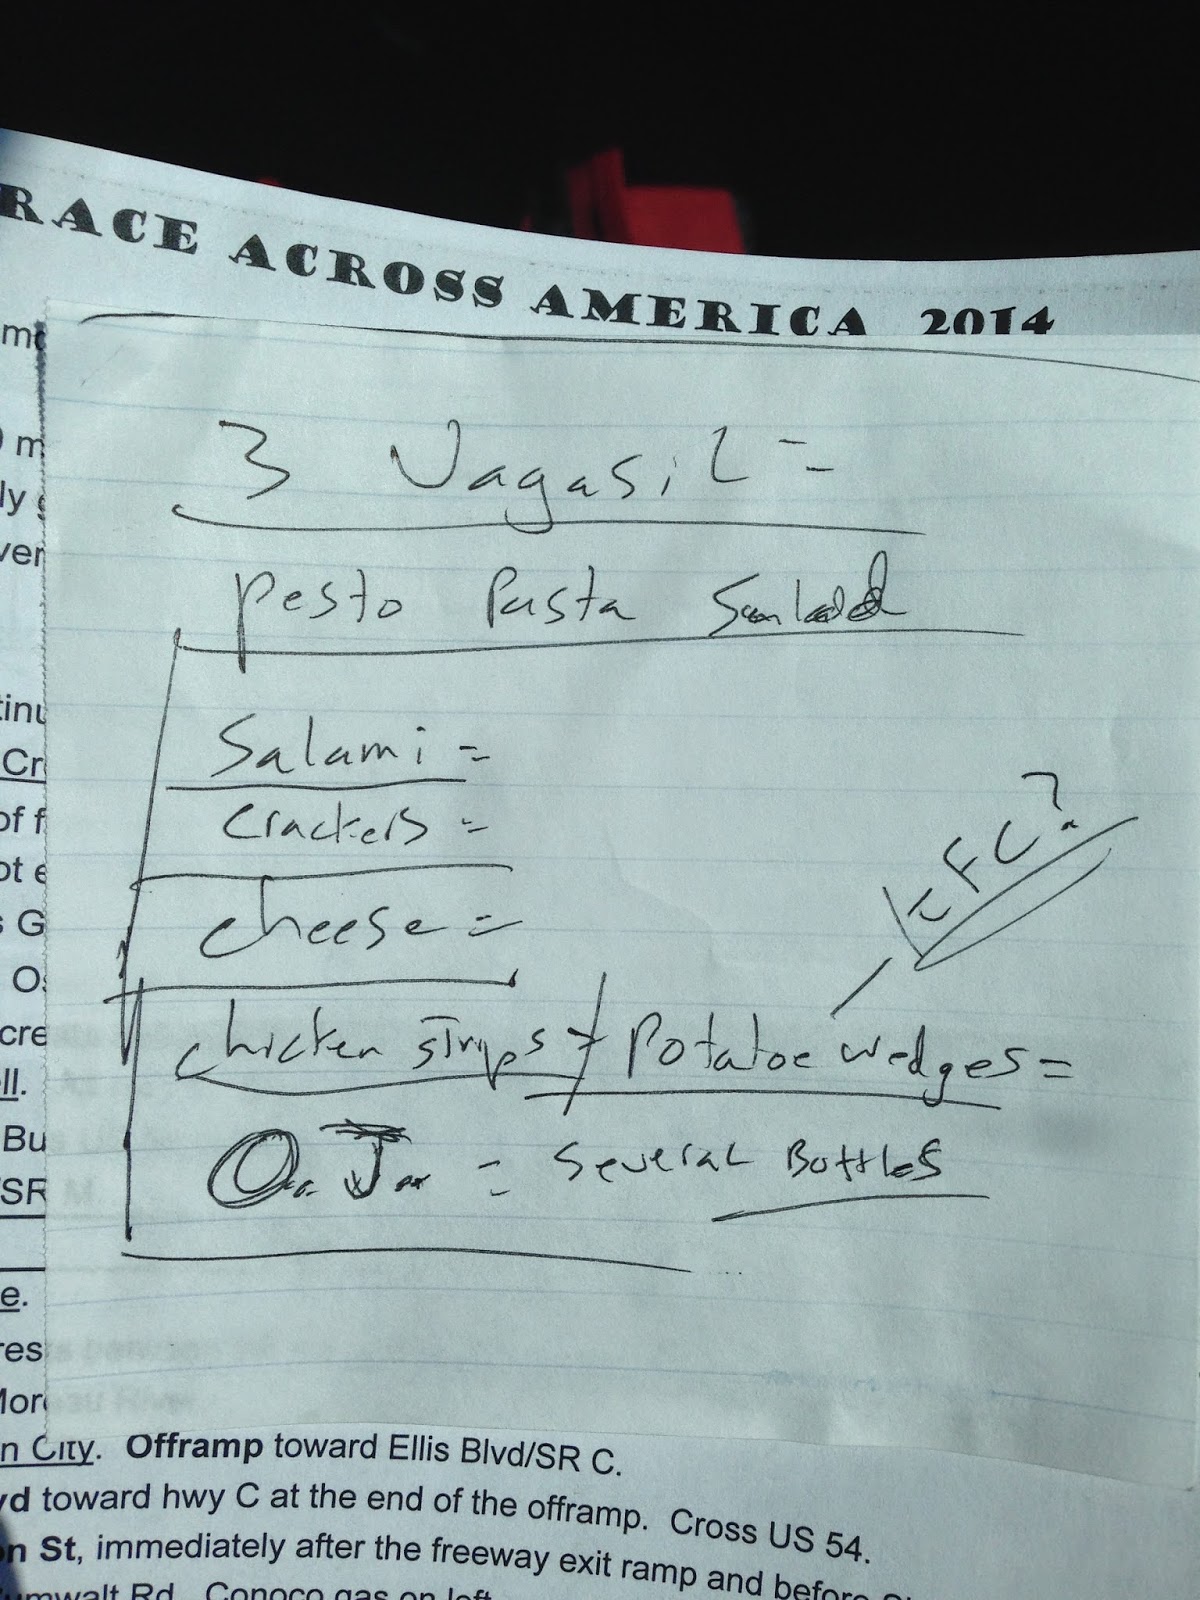 RACE ACROSS AMERICA 2014
m
ly
ver
3 Vagasil =
pesto Pasta Salad
tinu
Cr
Salami =
of f
crackers =
KFC?
ot e
s G
cheese =
O
cre
chicken strips + Potatoe wedges =
ll.
Bu
O.J. = Several Bottles
/SR
e.
res
Mor
n City. Offramp toward Ellis Blvd/SR C.
d toward hwy C at the end of the offramp. Cross US 54.
n St, immediately after the freeway exit ramp and before
umwalt Rd. Conoco gas on left